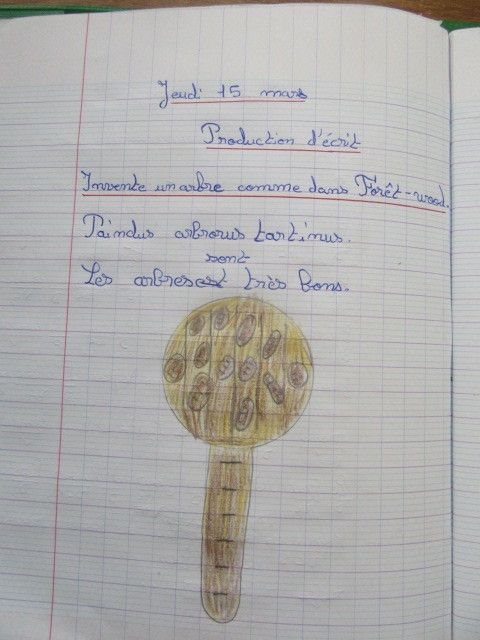 Jeudi 15 mars
Production d'écrit
Invente un arbre comme dans Forêt-wood.
Païndus arbrorus tartinus.
sont
Les arbres est très bons.